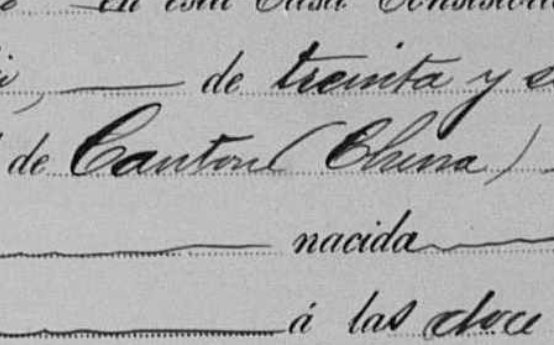 en esta Casa Consistori
de treinta y s
de Canton (China)
nacida
á las doce